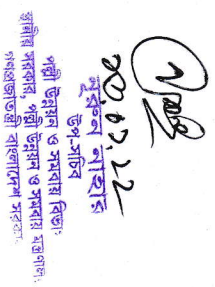 ২০.০২.২২
নুরুন নাহার
উপ-সচিব
পল্লী উন্নয়ন ও সমবায় বিভাগ
স্থানীয় সরকার, পল্লী উন্নয়ন ও সমবায় মন্ত্রণাল
গণপ্রজাতন্ত্রী বাংলাদেশ সরকার